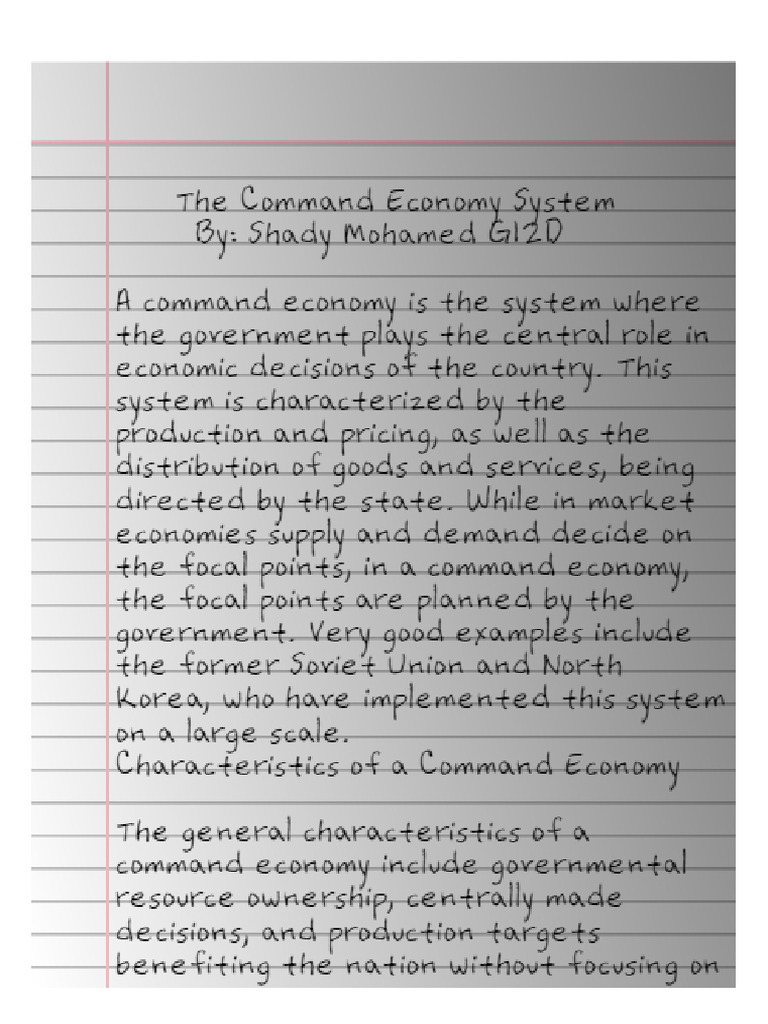 The Command Economy System
By: Shady Mohamed G12D
A command economy is the system where
the government plays the central role in
economic decisions of the country. This
system is characterized by the
production and pricing, as well as the
distribution of goods and services, being
directed by the state. While in market
economies supply and demand decide on
the focal points, in a command economy,
the focal points are planned by the
government. Very good examples include
the former Soviet Union and North
Korea, who have implemented this system
on a large scale.
Characteristics of a Command Economy
The general characteristics of a
command economy include governmental
resource ownership, centrally made
decisions, and production targets
benefiting the nation without focusing on